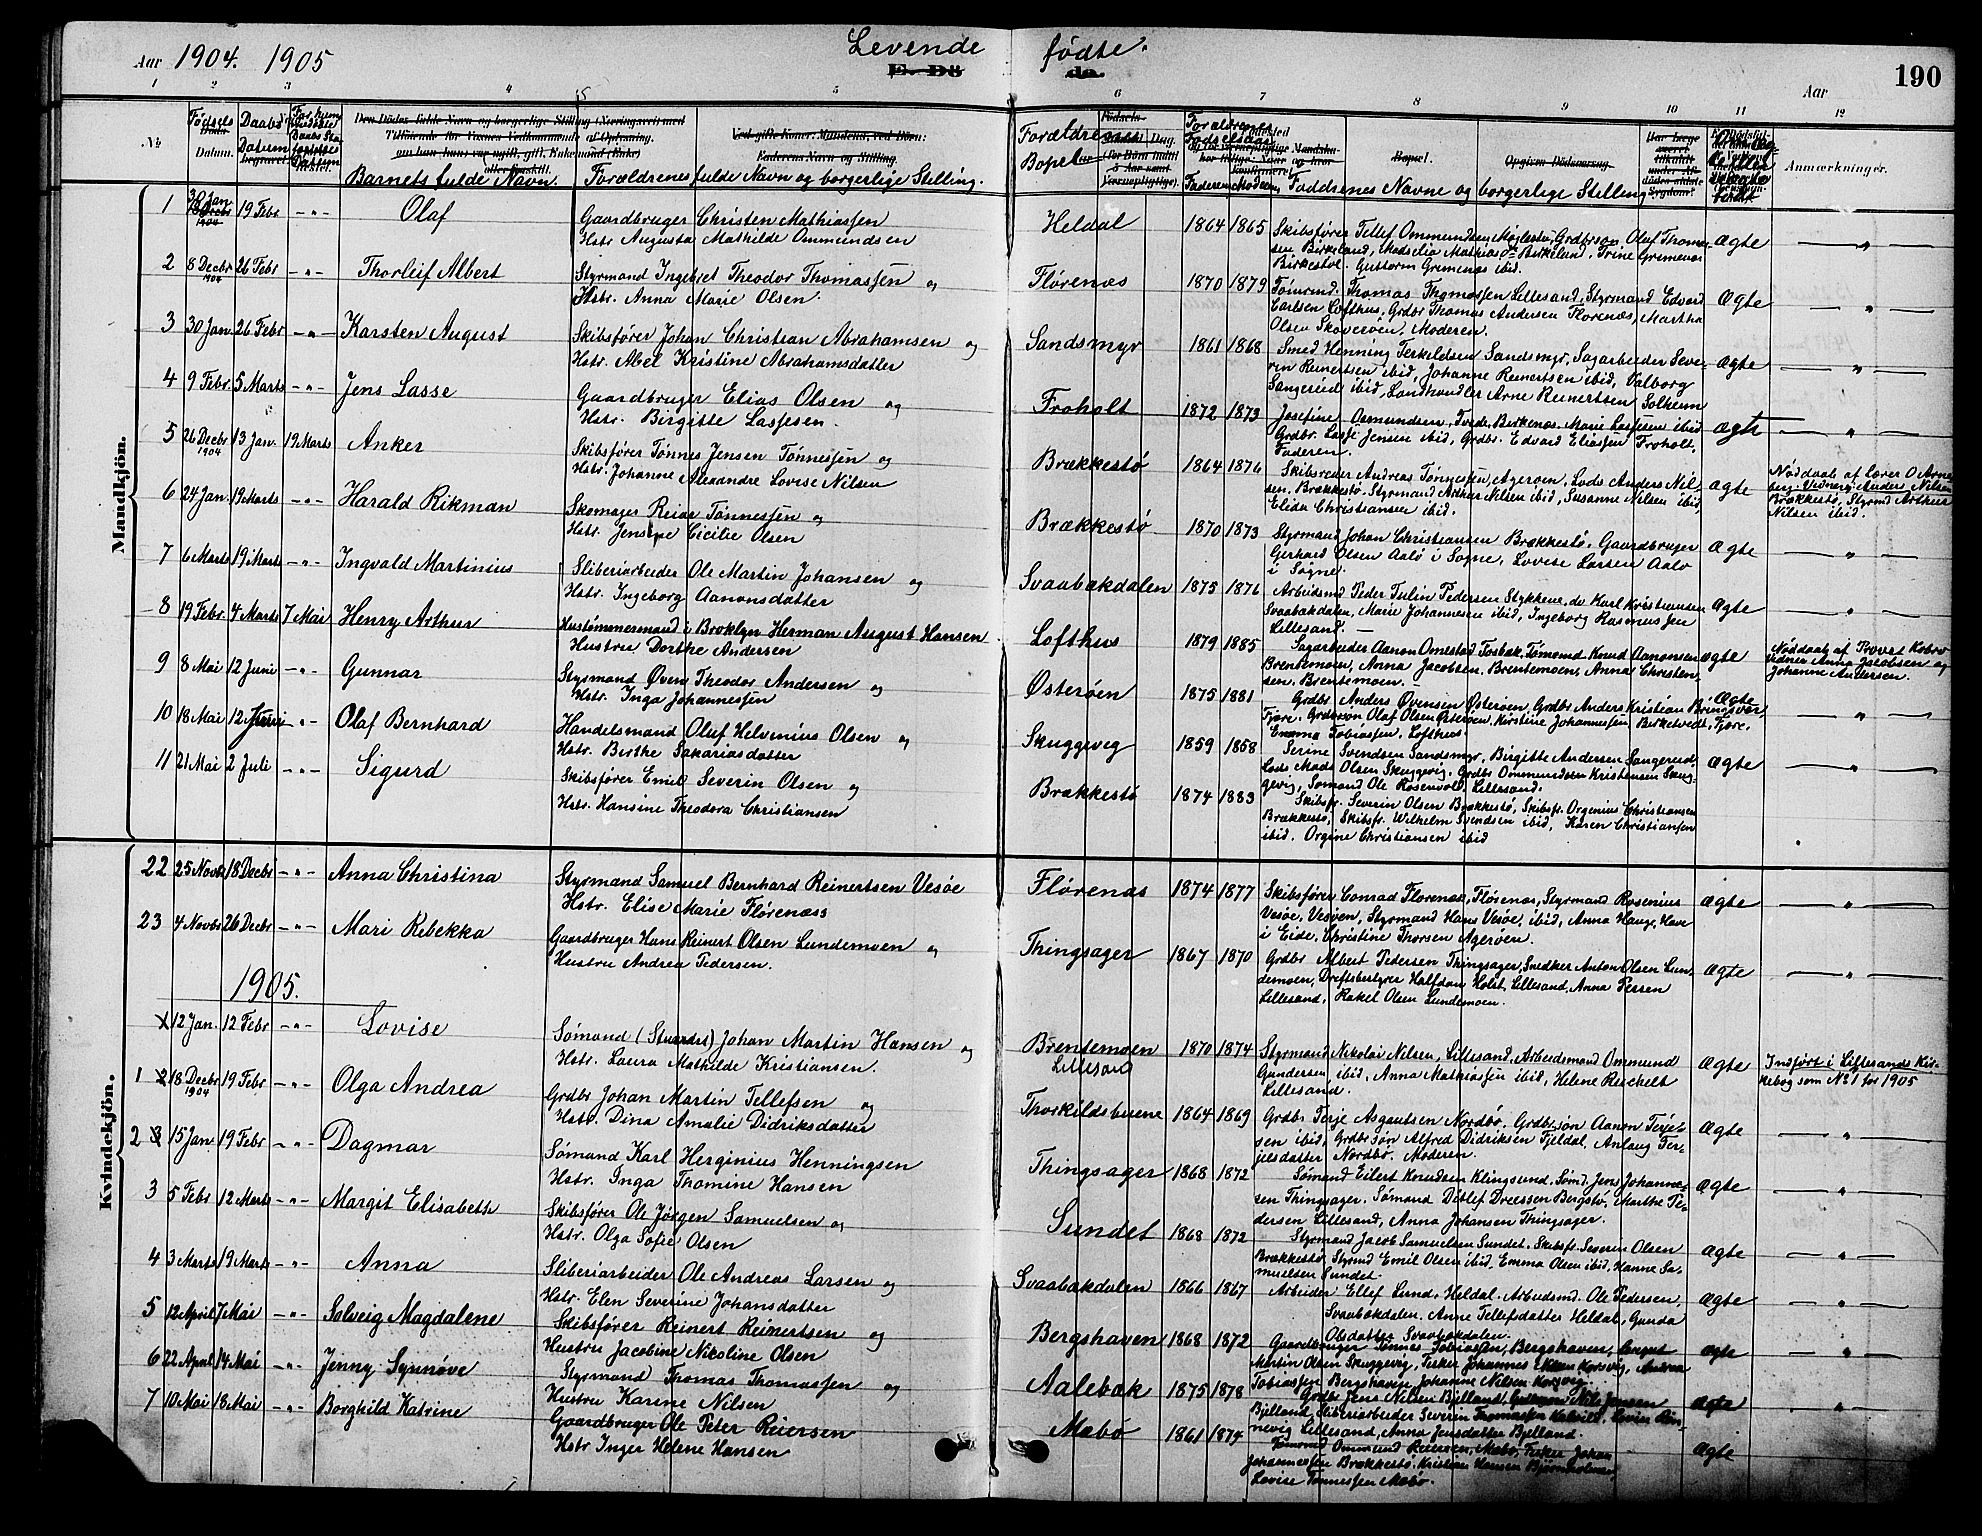 Aar 1904. 1905
Levende fødte.
190
Aar
Barnets fulde Navn.
Forældrenes fulde Navn og borgerlige Stilling.
Forældrenes Bopæl
Faddernes Navne og borgerlige Stilling
Anmærkninger.
Mandkjøn.
1 30 Jan 19 Febr -"- Olaf
Gaardbruger Christen Mathiassen
Hstr Augusta Mathilde Ommundsen
Heldal 1864 1865
Ægte
2 8 Decbr 1904 26 Febr -"- Thorleif Albert
Styrmand Ingebret Theodor Thomassen og
Hstr. Anna Marie Olsen.
Flørenæs 1870 1879
Tømrmd. Thomas Thomassen Lillesand, Styrmand Edvard
Carlsen Lofthus, Grdbr Thomas Andersen Florenæs, Martha
Olsen Skoverøen, Moderen.
Ægte
3 30 Jan 26 Febr -"- Karsten August
Skibsfører Johan Christian Abrahamsen og
Hstr. Abel Kristine Abrahamsdatter
Sandsmyr 1861 1868
Smed Henning Terkildsen Sandsmyr, Sagarbeider Seve-
rin Reinertsen ibid, Johanne Reinertsen ibid, Valborg
Sangereid ibid, Landhandler Arne Reinertsen Solheim
Ægte
4 9 Febr 5 Marts -"- Jens Lasse
Gaardbruger Elias Olsen og
Hstr. Birgitte Lassesen.
Froholt 1872 1873
Josefine Osmundsen, Tvede, Birkenæs, Marie Lassesen ibid
Grdbr. Lasse Jensen ibid, Grdbr. Edvard Eliassen Froholt,
Faderen.
Ægte
5 26 Decbr 1904 13 Jan. 19 Marts Anker
Skibsfører Tønnes Jensen Tønnessen og
Hstr. Johanne Alexandre Lovise Nilsen
Brækkestø 1864 1876
Skibsreder Andreas Tønnesen, Agerøen, Lods Anders Nil-
sen, Brækkestø, Styrmand Arthur Nilsen ibid, Susanne Nilsen ibid,
Elida Christiansen ibid.
Ægte
Nøddaab af Lærer O Arne-
berg. Vidner: Anders Nilsen
Brækkestø, Styrmd Arthur
Nilsen ibid.
6 24 Jan. 19 Marts -"- Harald Rikman
Skomager Reier Tønnessen og
Hstr. Jensine Cicilie Olsen
Brækkestø 1870 1873
Styrmand Johan Christiansen Brækkestø, Gaardbruger
Gerhard Olsen Aalø i Søgne, Lovise Larsen Aalø
i Søgne.
Ægte
7 6 Marts 19 Marts -"- Ingvald Martinius
Sliberiarbeider Ole Martin Johansen og
Hstr. Ingeborg Aanonsdatter
Svaabækdalen 1875 1876
Arbeidsmd Peder Tulin Pedersen Stykkene, do Karl Kristiansen
Svaabækdalen, Marie Johannesen ibid, Ingeborg Rasmussen
Lillesand.
Ægte
8 19 Febr 4 Marts 7 Mai Henry Arthur
Hustømmermand i Broklyn Herman August Hansen
Hustru Dorthe Andersen
Lofthus 1879 1885
Sagarbeider Aanon Omestad Fosbæk, Tømmd Knud Aanonsen
Brentemoen, Anna Jacobsen, Brentemoen, Anna Christen-
sen, Brentemoen.
Ægte
Nøddaab af Provst
Vidner Anna Jacobsen og
Johanne Andersen.
9 8 Mai 12 Juni -"- Gunnar
Styrmand Øven Theodor Andersen og
Hstr. Inga Johannessen
Østerøen 1875 1881
Grdbr Anders Øvensen Østerøen, Grdbr Anders Kristian Bringsvær,
Fjære. Grdbrsøn Olaf Olsen Østerøen, Kirstine Johannessen Birketvedt, Fjære.
Emma Tobiassen, Lofthus
Ægte
10 18 Mai 12 Juni -"- Olaf Bernhard
Handelsmand Oluf Helvinius Olsen og
Hstr. Birthe Sakariasdatter
Skuggevig 1859 1858
Serine Svendsen Sandsmyr, Birgitte Andersen Sangereid
Lods Mads Olsen Skuggevig, Grdbr Ommundsen Kristensen Skug-
gevig, Sømand Ole Rosenvold, Lillesand.
Ægte
11 21 Mai 2 Juli -"- Sigurd
Skibsfører Emil Severin Olsen og
Hstr. Hansine Theodora Christiansen
Brækkestø 1874 1883
Skibsfr. Severin Olsen Brækkestø, Skibsfr. Orgenius Christiansen
Brækkestø, Skibsfr. Wilhelm Svendsen ibid, Karen Christiansen
ibid. Orgine Christiansen ibid
Kvindekjøn.
22 25 Novbr 18 Decbr -"- Anna Christina
Styrmand Samuel Bernhard Reinertsen Vesøe
Hstr. Elise Marie Flørenæs
Flørenæs 1874 1877
Skibsfører Conrad Florenæs, Flørenæs, Styrmand Rosenius
Vesøe, Vesøen, Styrmand Hans Vesøe, ibid, Anna Hauge, Have
i Eide, Christine Thorsen Agerøen.
Ægte
23 4 Novbr 26 Decbr -"- Mari Rebekka
Gaardbruger Hans Reinert Olsen Lundemoen og
Hustru Andrea Pedersen.
Thingsager 1867 1870
Grdbr Albert Pedersen Thingsager, Snedker Anton Olsen Lun-
demoen, Driftsbestyrer Halfdan Holst, Lillesand, Anna Persen
Lillesand, Rakel Olsen Lundemoen.
Ægte
1905.
12 Jan. 12 Febr -"- Lovise
Sømand (Stuardt) Johan Martin Hansen og
Hstr. Laura Mathilde Kristiansen.
Brentemoen Lillesand 1870 1874
Styrmand Nikolai Nilsen, Lillesand, Arbeidsmand Ommund
Gundersen ibid, Anna Mathiassen ibid, Helene Reichelt
Lillesand.
Ægte
Indført i Lillesands Kir-
kebog som No 1 for 1905
1 18 Decbr 1904 19 Febr -"- Olga Andrea
Grdbr Johan Martin Tellefsen og
Hstr. Dina Amalie Didriksdatter
Thorkildsbuene 1864 1869
Grdbr Terje Asgautsen Nordbø. Grdbr.søn Aanon Terje-
sen ibid, Grdbr.søn Alfred Didriksen Fjeldal, Anlaug Ter-
jesdatter Nordbø. Moderen.
Ægte
2 15 Jan. 19 Febr -"- Dagmar
Sømand Karl Herginius Henningsen
Hstr. Inga Thomine Hansen
Thingsager 1868 1872
Sømand Eilert Knudsen Klingsund. Sømd. Jens Johanne-
sen Thingsager. Sømand Ditlef Dreessen Bergstø, Marthe Pe-
dersen Lillesand, Anna Johansen Thingsager.
Ægte
3 5 Febr 12 Marts -"- Margit Elisabeth
Skibsfører Ole Jørgen Samuelsen og
Hstr. Olga Sofie Olsen
Sundet 1868 1872
Styrmand Jacob Samuelsen Sundet. Skibsf. Severin Olsen
Brækkestø, Styrmd Emil Olsen ibid, Emma Olsen ibid, Hanne Sa-
muelsen Sundet.
Ægte
4 3 Marts 19 Marts -"- Anna
Sliberiarbeider Ole Andreas Larsen og
Hstr. Elen Severine Johansdatter
Svaabækdalen 1866 1867
Arbeider Ellef Lund, Heldal, Arbeidsmd. Ole Pedersen,
Svaabækdalen. Anne Tellefsdatter Heldal, Gunda
Olsdatter Svaabækdalen.
Ægte
5 12 April 7 Mai -"- Solveig Magdalene
Skibsfører Reinert Reinertsen og
Hustru Jacobine Nicoline Olsen
Bergshaven 1868 1872
Gaardbruger Tønnes Tobiassen, Bergshaven, August
Martin Olsen Skuggevig, Fisker Johannes Nilsen Korsvig, Andrea
Tobiassen Bergshaven, Johanne Nilsen Korsvig.
Ægte
6 22 April 14 Mai -"- Jenny Synnøve
Styrmand Thomas Thomassen og
Hustru Karine Nilsen
Aalebæk 1875 1878
Grdbr Jens Nilsen Bjelland, Nils Jensen
Bjelland, Sliberiarbeider Severin Thomassen
Lillesand, Anna Jensdatter Bjelland.
Ægte
7 10 Mai 18 Mai -"- Borghild Katrine
Gaardbruger Ole Peter Reiersen
Hstr Inger Helene Hansen
Mæbø 1861 1874
Ommund Reiersen, Mæbø, Fisker Johan
Johannessen Brækkestø, Kristian Hansen
Lovise Tønnessen Mæbø.
Ægte